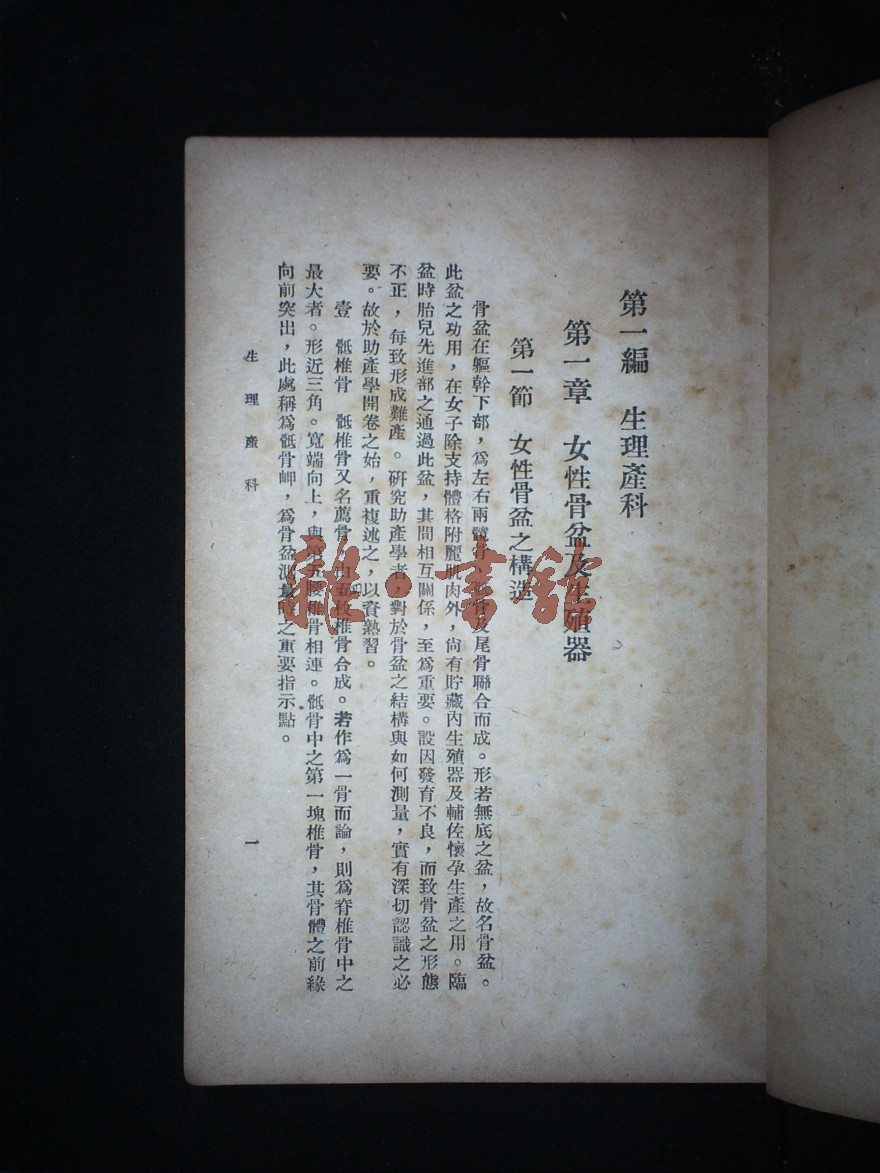 第一編　生理產科
第一章　女性骨盆及生殖器
第一節　女性骨盆之構造
骨盆在軀幹下部，爲左右兩髖骨骶骨及尾骨聯合而成。形若無底之盆，故名骨盆。
此盆之功用，在女子除支持體格附麗肌肉外，尙有貯藏內生殖器及輔佐懷孕生產之用。臨
盆時胎兒先進部之通過此盆，其間相互關係，至爲重要。設因發育不良，而致骨盆之形態
不正，每致形成難產。硏究助產學者，對於骨盆之結構與如何測量，實有深切認識之必
要。故於助產學開卷之始，重複述之，以資熟習。
壹　骶椎骨　骶椎骨又名薦骨由五枚椎骨合成。若作爲一骨而論，則爲脊椎骨中之
最大者。形近三角。寬端向上，與第五腰椎骨相連。骶骨中之第一塊椎骨，其骨體之前緣
向前突出，此處稱爲骶骨岬，爲骨盆測量時之重要指示點。
生理產科
一
雜·書館